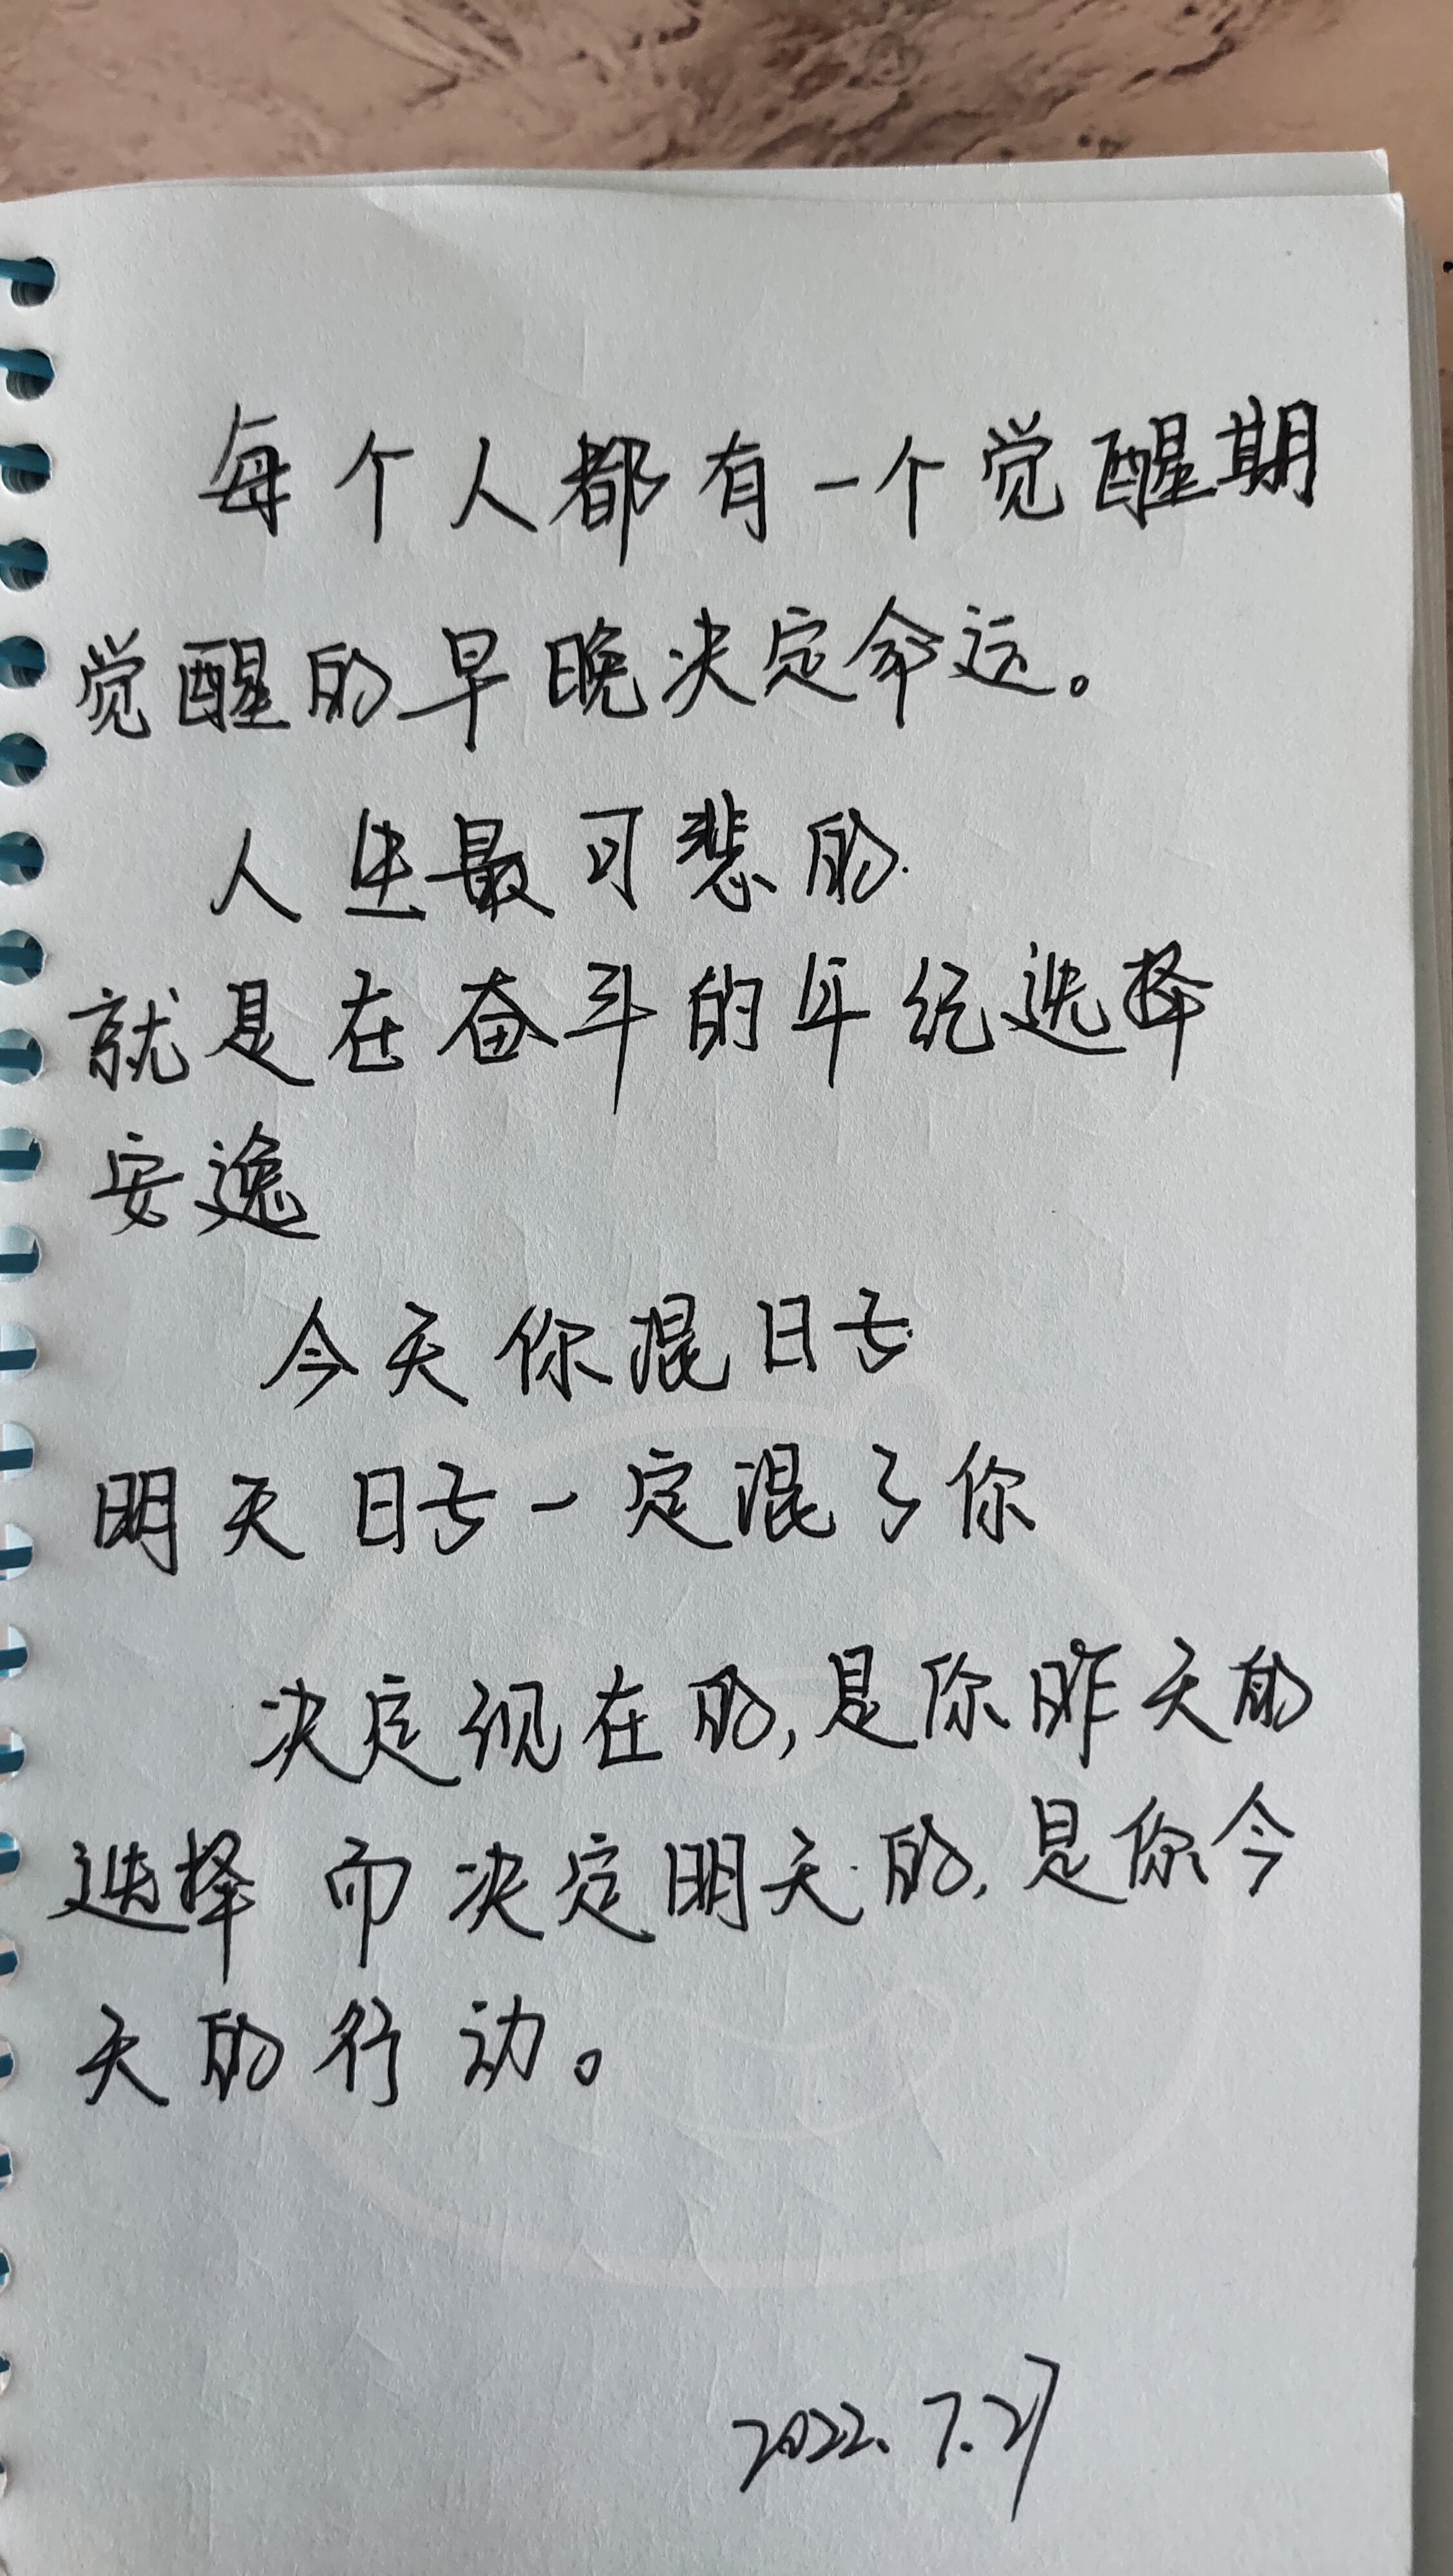 每个人都有一个觉醒期
觉醒的早晚决定命运。
人生最可悲的.
就是在奋斗的年纪选择
安逸
今天你混日子
明天日子一定混了你
决定现在的,是你昨天的
选择 而决定明天的,是你今
天的行动。
2022.7.27